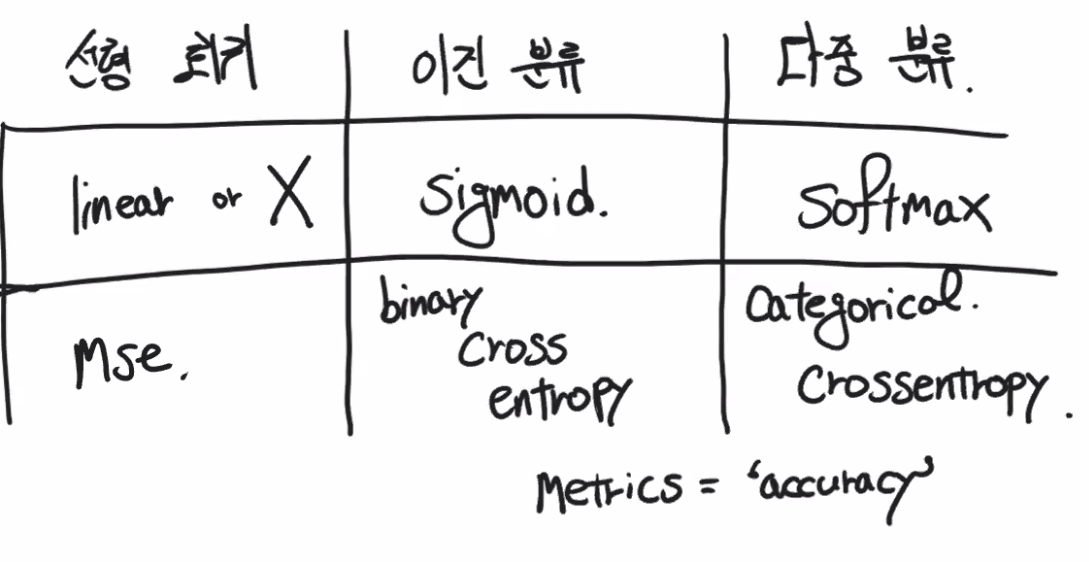 선형 회귀 이진 분류 다중 분류.
linear or X Sigmoid. Softmax
Mse. binary Cross entropy Categorical. Crossentropy.
Metrics = 'accuracy'